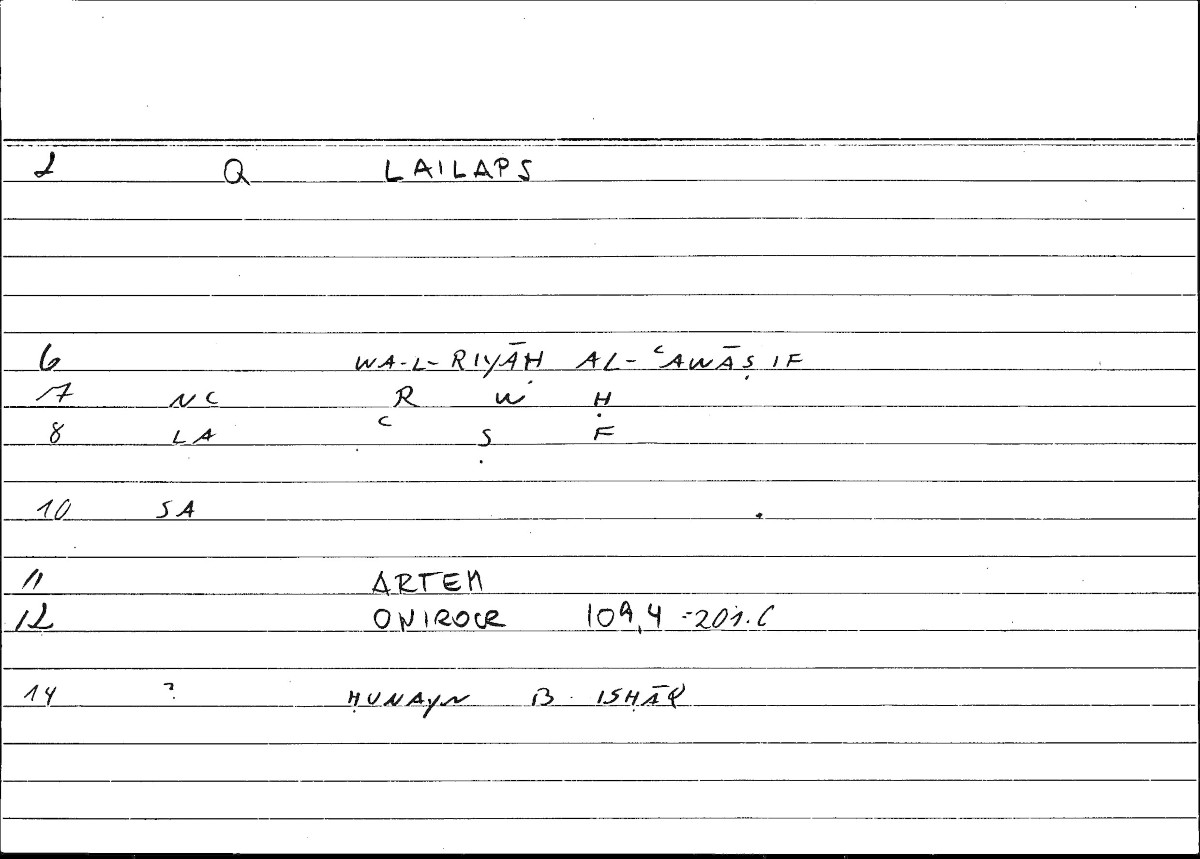 2 Q LAILAPS
6 WA-L-RIYĀḤ AL-ʿAWĀṢIF
7 NC R W Ḥ
8 LA ʿ Ṣ F
10 SA
11 ARTEM
12 ONIROCR 109,4 = 201.6
14 ? ḤUNAYN B. ISḤĀQ